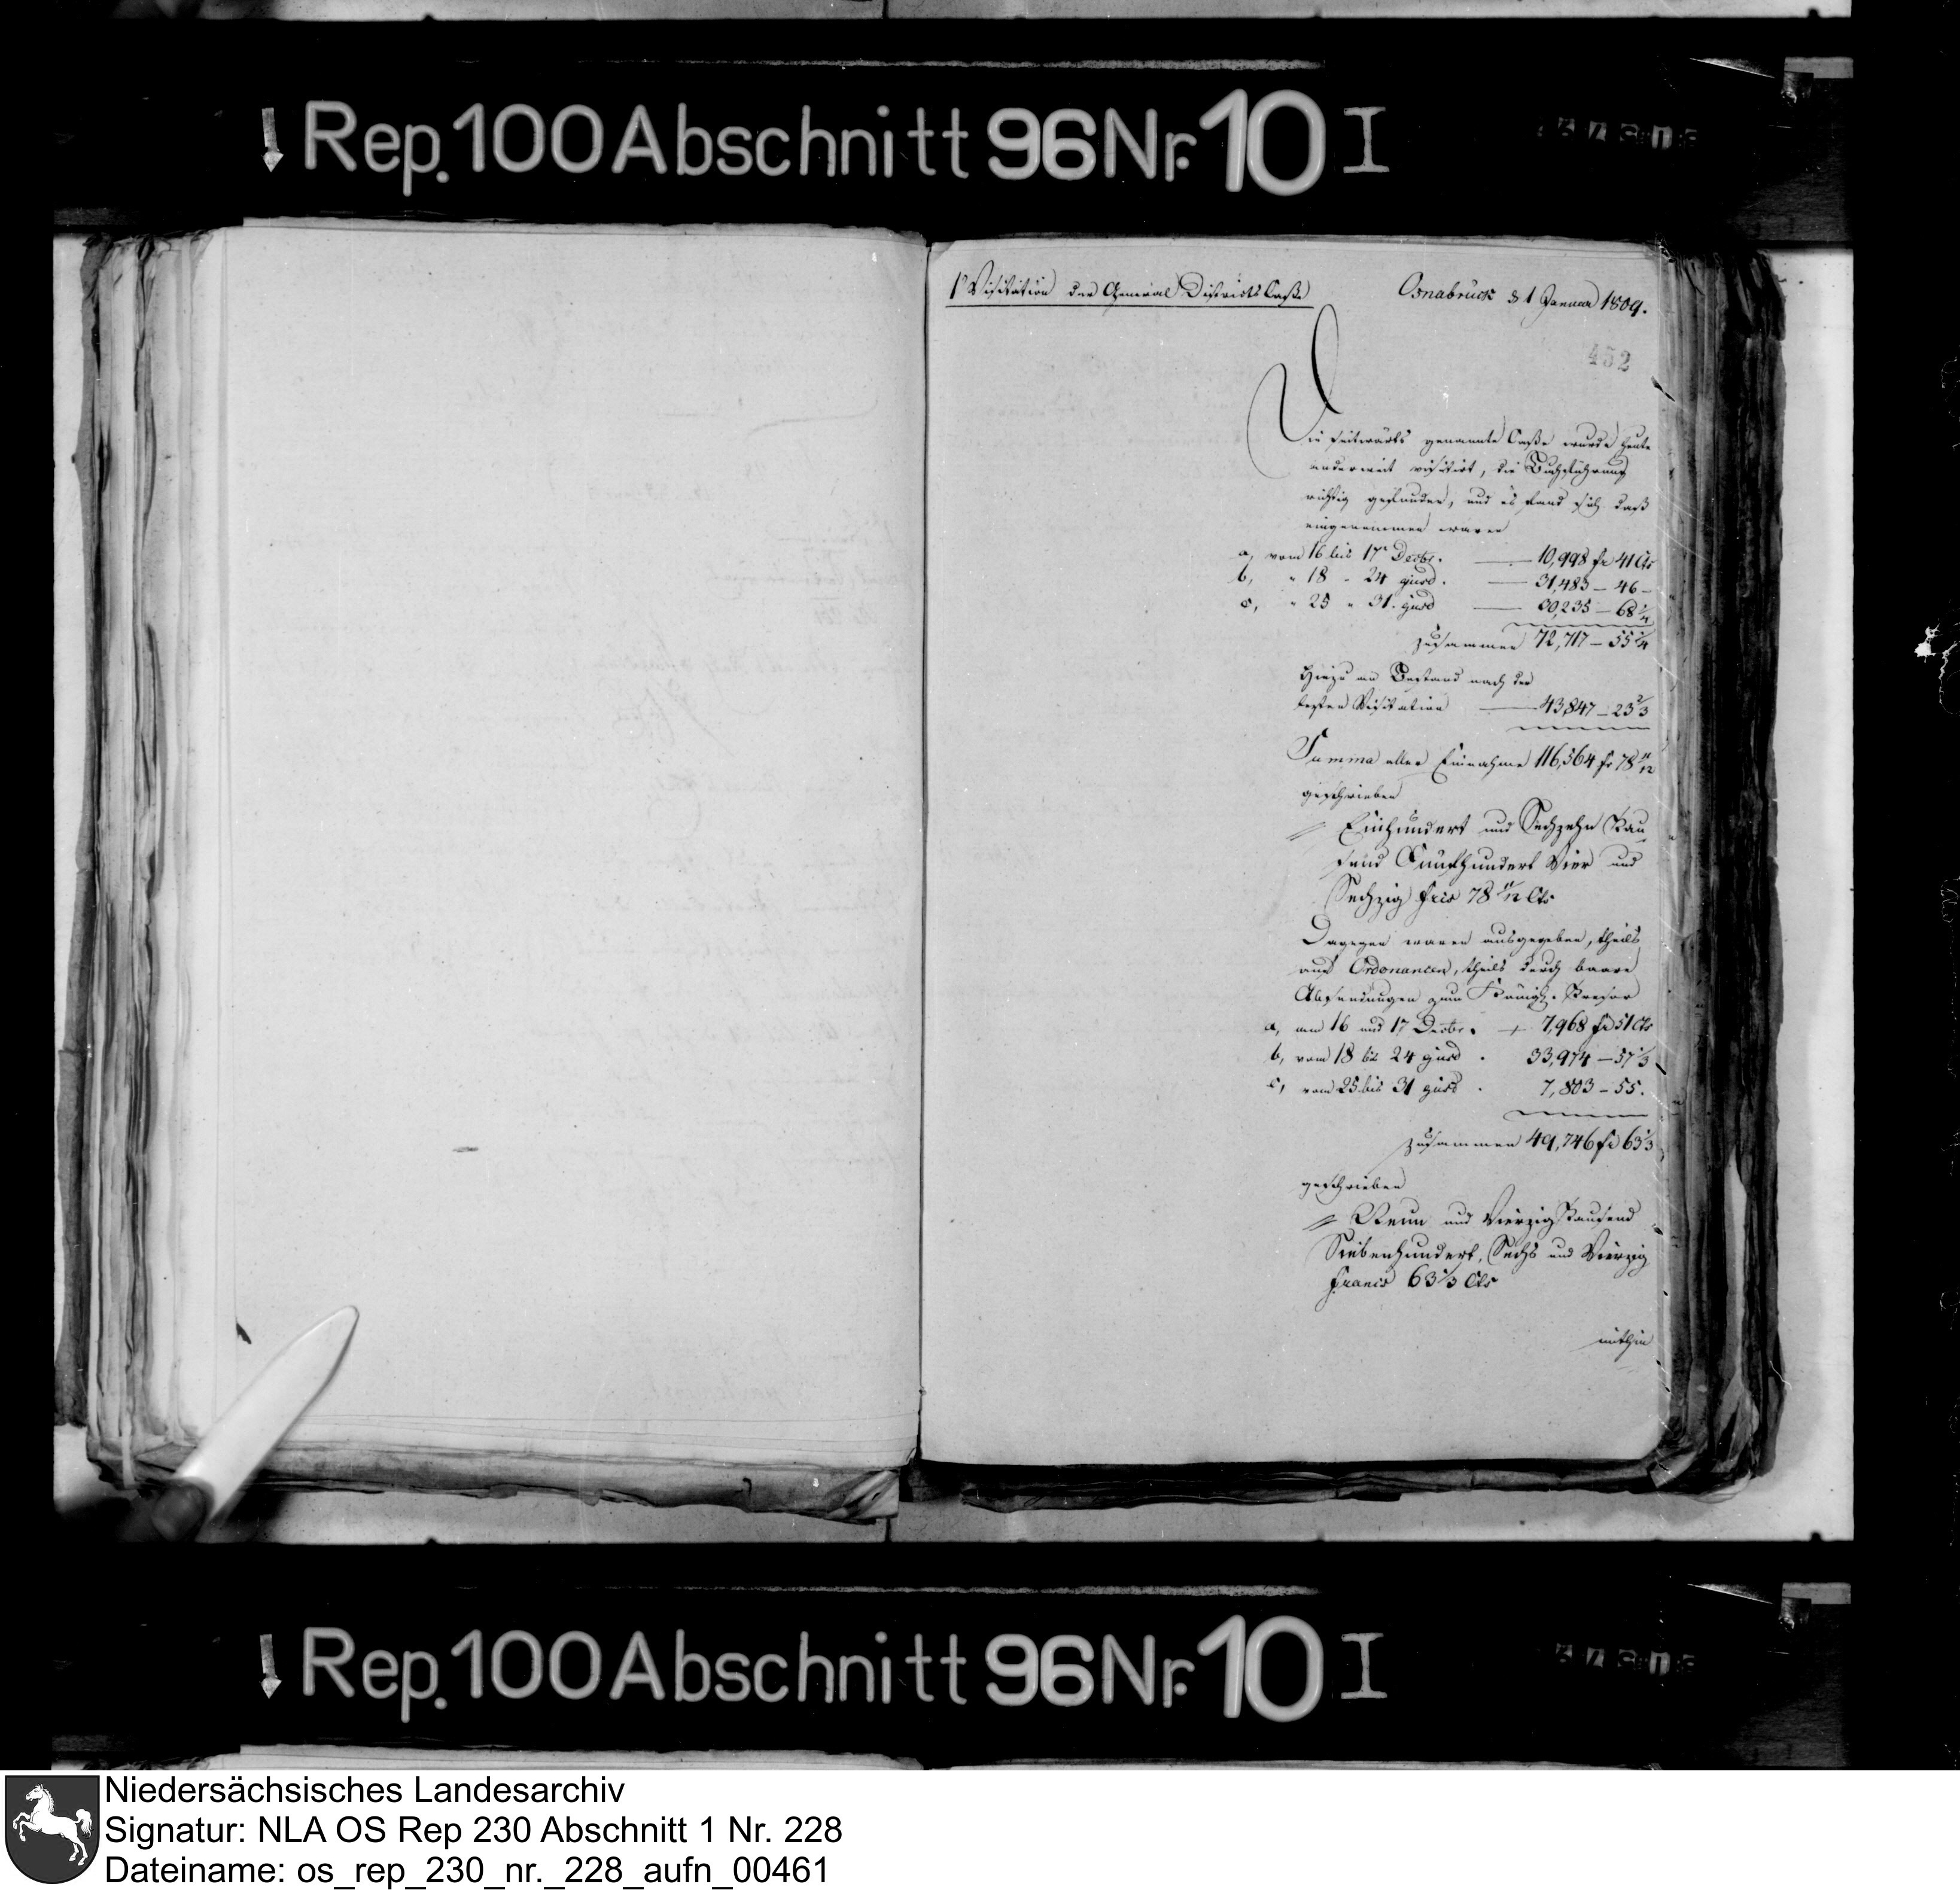 Rep. 100 Abschnitt 96 Nr. 10 I
1° Visitation der General Districts Casse
Osnabrück d 1 Januar 1809.
452
Die seitwärts genannte Casse wurde heute
anderweit visitirt, die Buchführung
richtig gefunden, und es fand sich daß
eingenommen waren
a, vom 16 bis 17ⁿ Decbr. — 10,998 fr 41 Cts
b, " 18 - 24 ejusd. — 31,483 — 46 —
c, " 25 " 31. ejusd — 30,235 — 68 1/4
zusammen 72,717 — 55 1/4
Hiezu an Bestand nach der
letzten Visitation — 43,847 — 23 2/3
Summa aller Einnahme 116,564 fr 78 11/12
geschrieben
Einhundert und Sechzehn Tau
send Fünfhundert Vier und
Sechzig frcs 78 11/12 Cts
Dagegen waren ausgegeben, theils
auf Ordonancen, theils durch baare
Absendungen zum Königl. Tresor
a, am 16 und 17 Decbr. 7,968 fr 51 Cts
b, vom 18 bis 24 ejusd. 33,974 — 57 1/3
c, vom 25 bis 31 ejusd. 7,803 — 55.
zusammen 49,746 fr 63 1/3
geschrieben
Neun und Vierzig Tausend
Siebenhundert, Sechs und Vierzig
Francs 63 1/3 Cts
mithin
Rep. 100 Abschnitt 96 Nr. 10 I
Niedersächsisches Landesarchiv
Signatur: NLA OS Rep 230 Abschnitt 1 Nr. 228
Dateiname: os_rep_230_nr._228_aufn_00461